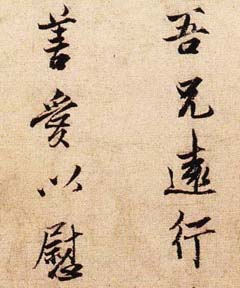 吾兄遠行
善愛以慰